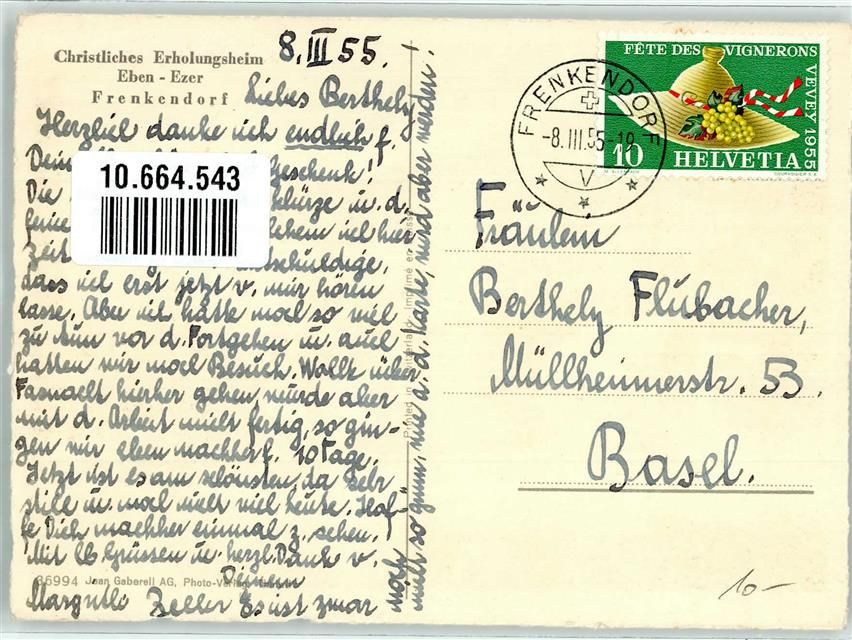 Christliches Erholungsheim
Eben - Ezer
Frenkendorf
8. III 55.
Liebes Berthely
Herzlich danke ich endlich f.
Dein Geschenk!
Die kürze u. d.
ferie ich hier
Zeit entschuldige,
dass ich erst jetzt v. mir hören
lasse. Aber ich hatte noch so viel
zu tun vor d. Fortgehen u. auch
hatten wir noch Besuch. Wollte über
Fasnacht hierher gehen, wurde aber
mit d. Arbeit nicht fertig, so gin-
gen wir eben nachher f. 10 Tage.
Jetzt ist es am schönsten, da sehr
still u. noch nicht viel heute. Hof-
fe Dich nachher einmal z. sehen.
Mit lb Grüssen u. herzl. Dank v.
Deinem
Margritli Zeller Es ist zwar
noch
nicht so grün, wie a. d. Karte, wird aber werden!
10.664.543
36994 Jean Gaberell AG, Photo-
Printed in Switzerland Imprimé en Suisse
FÊTE DES VIGNERONS
VEVEY 1955
10 HELVETIA
COURVOISIER S.A.
FRENKENDORF
-8.III.55-19
V
Fräulein
Berthely Flubacher,
Müllheimerstr. 53.
Basel.
10-